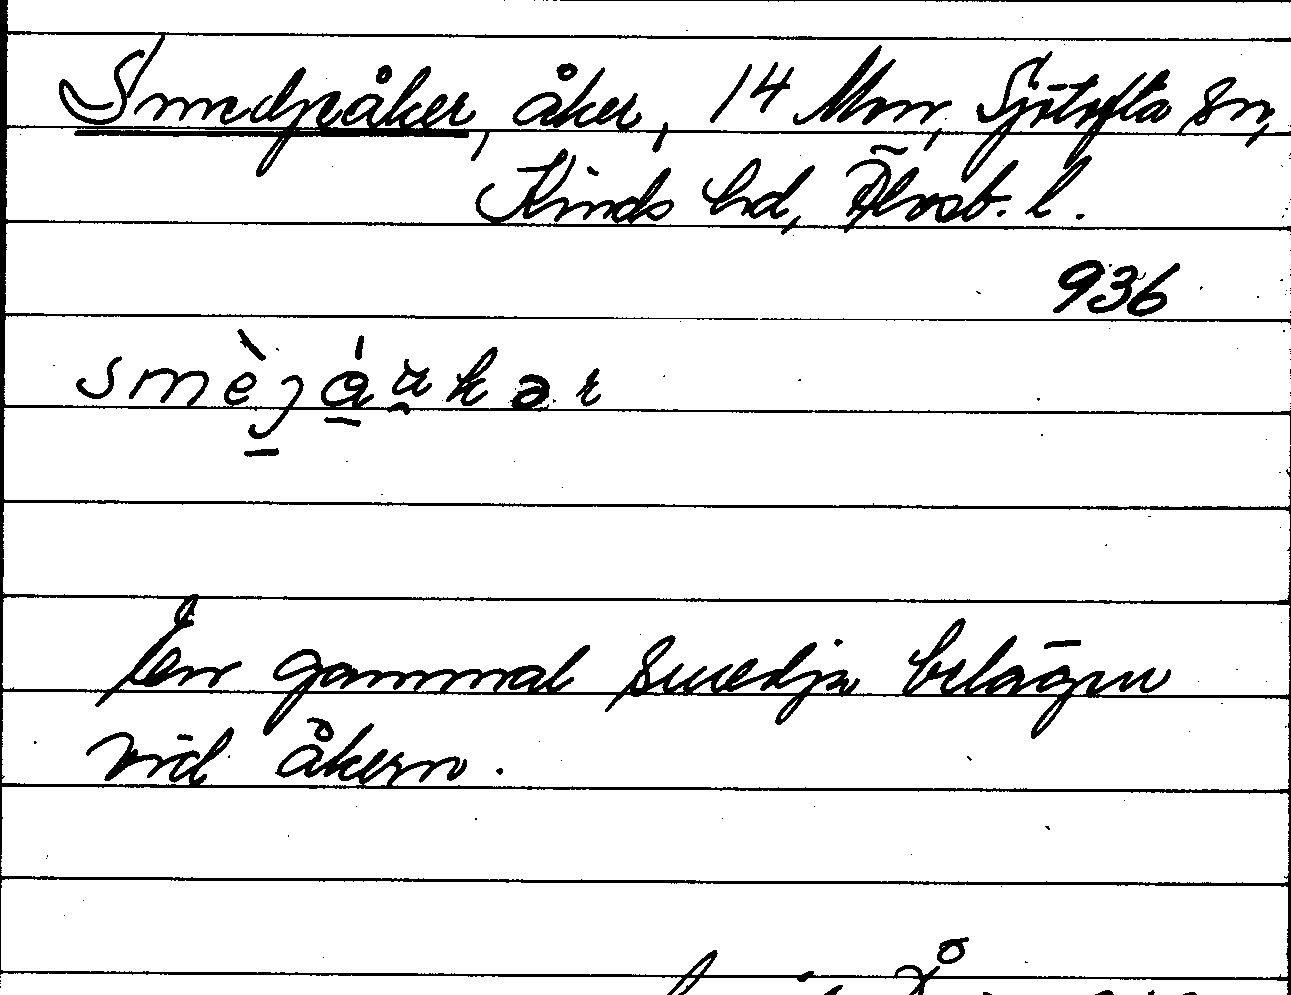 Smedjeåker, åker, 14 Mon, Sjötofta sn,
Kinds hd, Älvsb. l.
936
smèjáukər
En gammal smedja belägen
vid åkern.